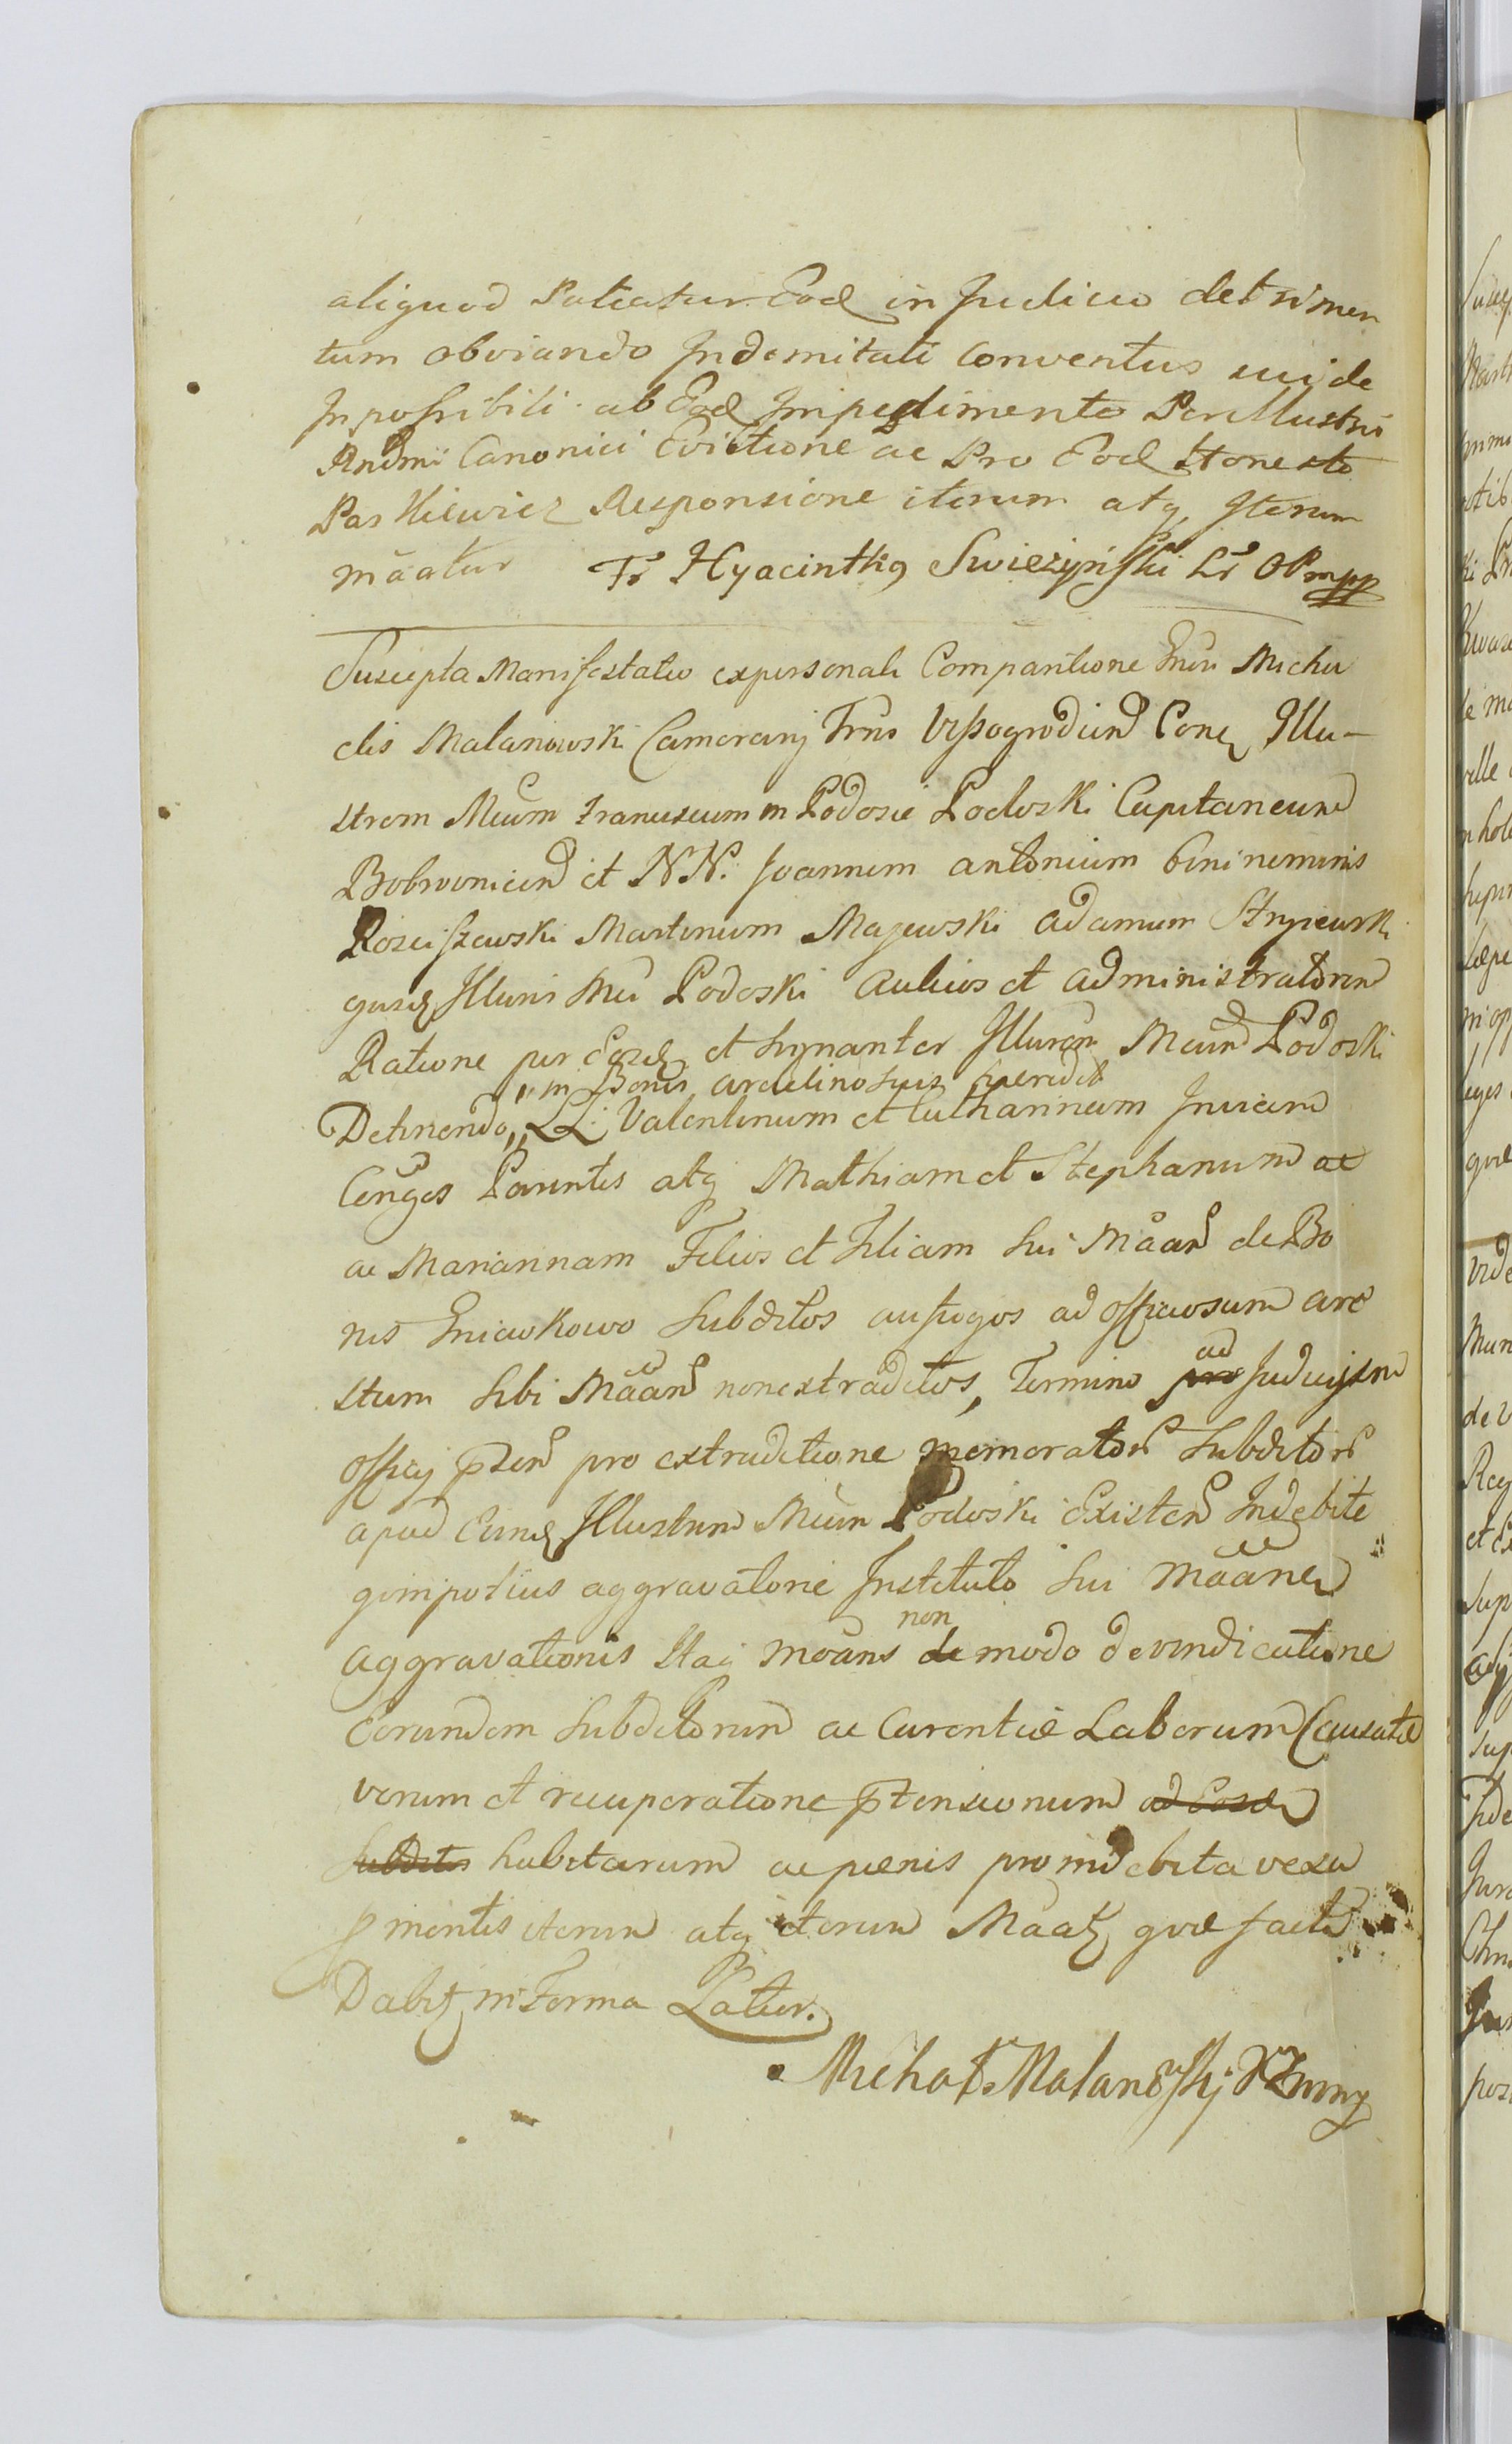 aliquod Patiatur Eod in Judicio detrimen
tum obviando Indemnitati Conventus sui de
Inpossibili ab Eod Impedimento Perillustris
Rndmi Canonici Evictione ac Pro Eod Honesto
Paskiewicz Responsione iterum atq Iterum
māatur Fr Hyacinthq Swieżyński Lr OPmpp
Suscepta Manifestatio ex personali Comparitione Gnsi Micha
elis Malanowski Camerarij Trrus Vissogrodien Conq Illu-
strem Mcum Franciscum in Podosie Podoski Capitaneum
Bobrownicen et NN. Joannem antonium bini neminis
Rosciszewski Martinum Majewski adamum Stryiewski
gusq Illuris Mci Podoski aulicos et administratorem
Ratione per Eosd et signanter Illurem Mcum Podoski
" in Bonis Hæredit
Detinendo " LL. Valentinum et Catharinam Invicem
Conges Parentes atq Mathiam et Stephanum ac
ac Mariannam Filios et Filiam sui Māan de Bo
nis Gniewkowo Subditos aufugos ad officiosum are
stum sibi Māan non extraditos, Termino pro ad Judicium
officij pten pro extraditione memorator Subditor
apud Eund Illustrem Mcum Podoski Existen Indebite
quinpotius aggravatorie Instituto sui Māanem
aggravationis Itaq māans de non modo de vindicatione
Eorundem Subditorum ac Carentiæ Laborum Causatæ
verum et recuperatione ptensionum ad Eosdem
Subditos habitarum ac pænis pro indebita vexa
pmontis iterum atq iterum Māat quæ facta
Dabit in Forma Latior.
Michał Malanowski KZWmp